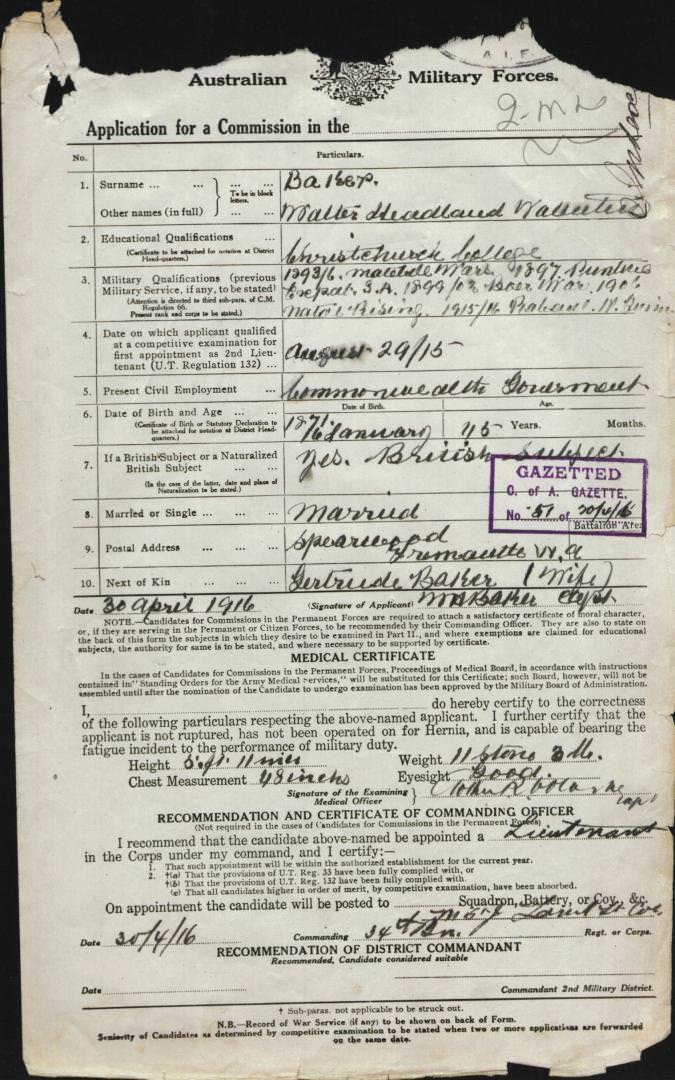 A.I.F.
Australian Military Forces.
Application for a Commission in the
No. Particulars.
1. Surname ... ... } ... ... Baker.
To be in block letters.
Other names (in full) ... ... Walter Headland
2. Educational Qualifications ... Christchurch College
(Certificate to be attached for notation at District Head-quarters.)
3. Military Qualifications (previous Military Service, if any, to be stated)
(Attention is directed to third sub-para. of C.M. Regulation 66.
Present rank and corps to be stated.)
1893/6. Matabele Wars. 1897
S.A. 1899/02 Boer War. 1906
Natal Rising. 1915/16 Rabaul N. Guinea
4. Date on which applicant qualified at a competitive examination for first appointment as 2nd Lieutenant (U.T. Regulation 132) ... August 29/15
5. Present Civil Employment ... ... Commonwealth Government
6. Date of Birth and Age ... ...
(Certificate of Birth or Statutory Declaration to be attached for notation at District Head-quarters.)
Date of Birth. Age.
1871
16 January 45 Years. Months.
7. If a British Subject or a Naturalized British Subject ... ... Yes. British Subject
(In the case of the latter, date and place of Naturalization to be stated.)
GAZETTED
C. of A. GAZETTE.
No. 51 of
8. Married or Single ... ... ... Married
Battalion Area
9. Postal Address ... ... ... Spearwood
Fremantle W.A
10. Next of Kin ... ... ... Gertrude Baker (Wife)
Date 30 April 1916 (Signature of Applicant) Baker Capt.
NOTE.—Candidates for Commissions in the Permanent Forces are required to attach a satisfactory certificate of moral character,
or, if they are serving in the Permanent or Citizen Forces, to be recommended by their Commanding Officer. They are also to state on
the back of this form the subjects in which they desire to be examined in Part II., and where exemptions are claimed for educational
subjects, the authority for same is to be stated, and where necessary to be supported by certificate.
MEDICAL CERTIFICATE
In the cases of Candidates for Commissions in the Permanent Forces, Proceedings of Medical Board, in accordance with instructions
contained in "Standing Orders for the Army Medical Services," will be substituted for this Certificate; such Board, however, will not be
assembled until after the nomination of the Candidate to undergo examination has been approved by the Military Board of Administration.
I, do hereby certify to the correctness
of the following particulars respecting the above-named applicant. I further certify that the
applicant is not ruptured, has not been operated on for Hernia, and is capable of bearing the
fatigue incident to the performance of military duty.
Height 5 ft. 11 ins Weight 11 stone 3 lb.
Chest Measurement 48 inchs Eyesight Good.
Signature of the Examining Medical Officer } Capt
RECOMMENDATION AND CERTIFICATE OF COMMANDING OFFICER
(Not required in the cases of Candidates for Commissions in the Permanent Forces)
I recommend that the candidate above-named be appointed a Lieutenant
in the Corps under my command, and I certify:—
1. That such appointment will be within the authorized establishment for the current year.
2. †(a) That the provisions of U.T. Reg. 33 have been fully complied with, or
†(b) That the provisions of U.T. Reg. 132 have been fully complied with.
(c) That all candidates higher in order of merit, by competitive examination, have been absorbed.
On appointment the candidate will be posted to Squadron, Battery, or Coy., &c.
Date 30/4/16 Commanding 34th Bn. Regt. or Corps.
RECOMMENDATION OF DISTRICT COMMANDANT
Recommended, Candidate considered suitable
Date Commandant 2nd Military District.
† Sub-paras. not applicable to be struck out.
N.B.—Record of War Service (if any) to be shown on back of Form.
Seniority of Candidates as determined by competitive examination to be stated when two or more applications are forwarded
on the same date.